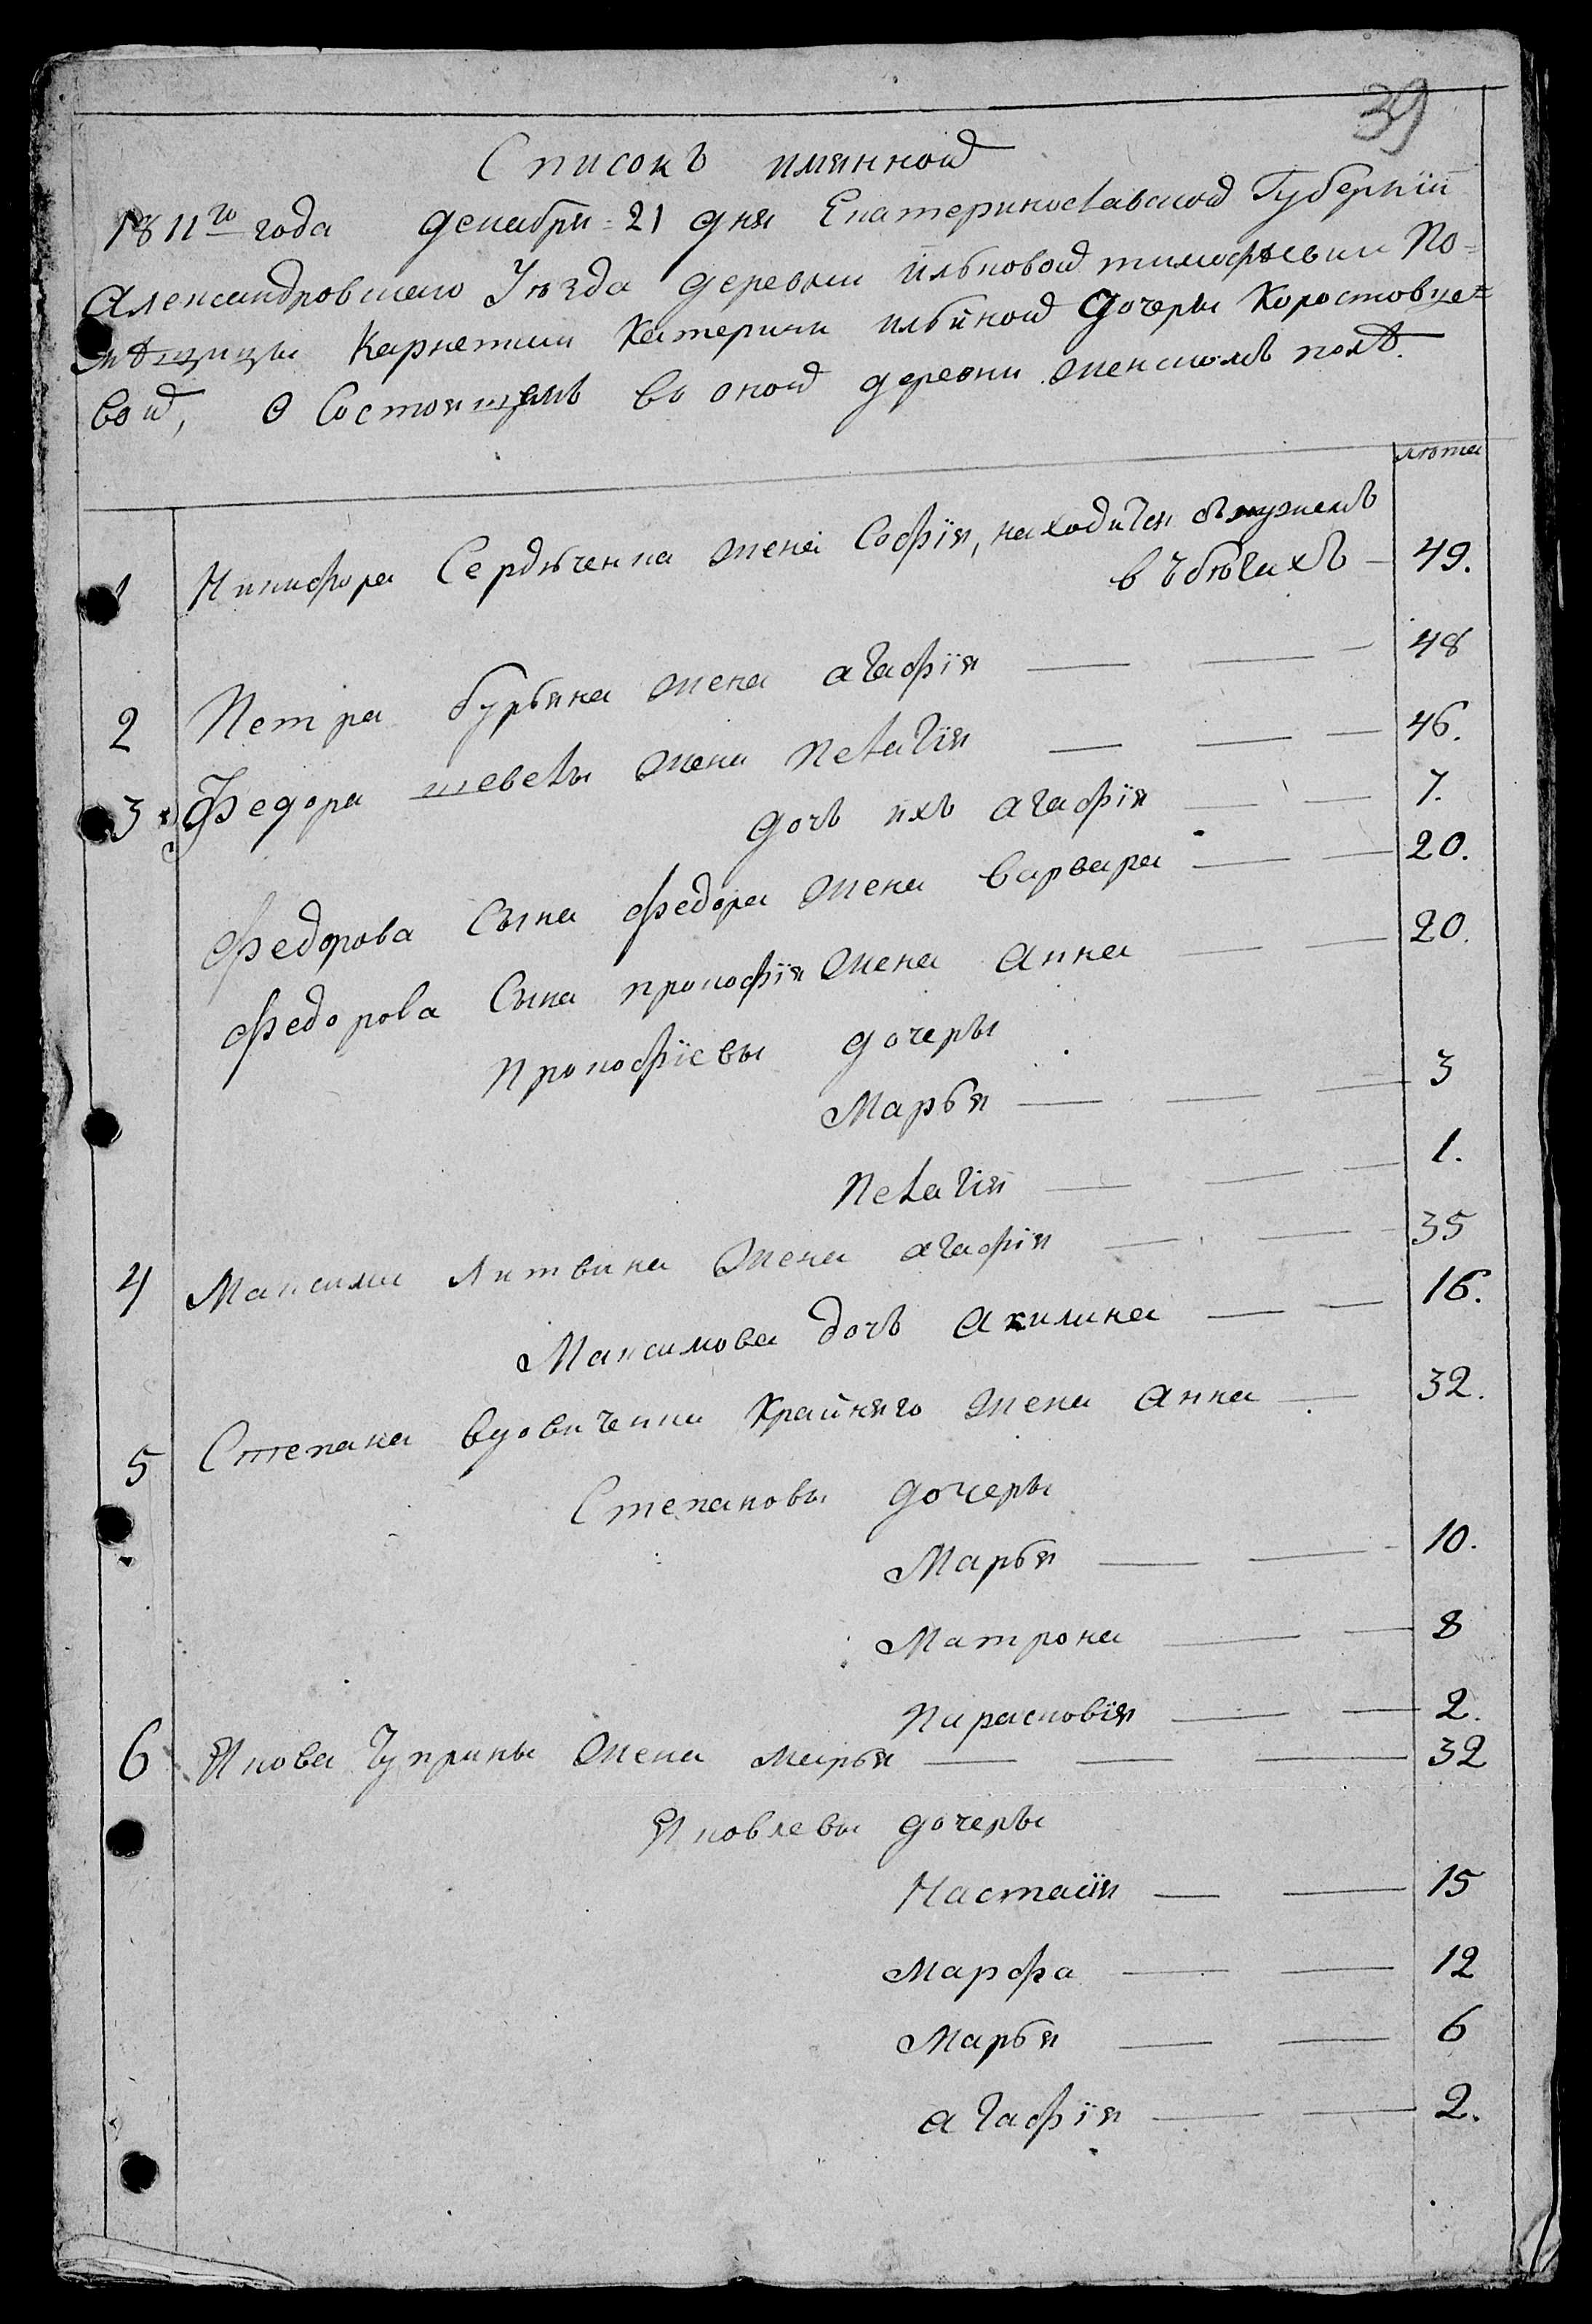 39
Списокъ имянной
1811го года декабря = 21 дня Екатеринославской Губернїи
Александровскаго Уѣзда деревни ильковой тимофѣевки По=
мѣщицы Карнетши Катерини ильиной дочеры Коростовце=
вой, о Состоящемъ во оной деревни женскомъ полѣ.
лѣта
1 Никифора Сердѣченка жена Софїя, находится съ мужемъ
въ бѣгахъ — 49.
2 Петра бурьяна жена агафїя — 48
3 Федора шевеля жена Пелагїя — 46.
дочь ихъ агафїя — 7.
федорова Сына федора жена варвара — 20.
федорова Сына прокофїя жена анна — 20.
прокофїевы дочеры
Марья — 3
Пелагїя — 1.
4 Максима Литвина жена агафїя — 35
Максимова дочь акилина — 16.
5 Степана вдовиченка Крайняго жена анна — 32.
Степановы дочеры
Марья — 10.
Матрона — 8
Парасковїя — 2.
6 Якова Чуприны жена марья — 32
Яковлевы дочеры
Настасїя — 15
Марфа — 12
Марья — 6
агафїя — 2.